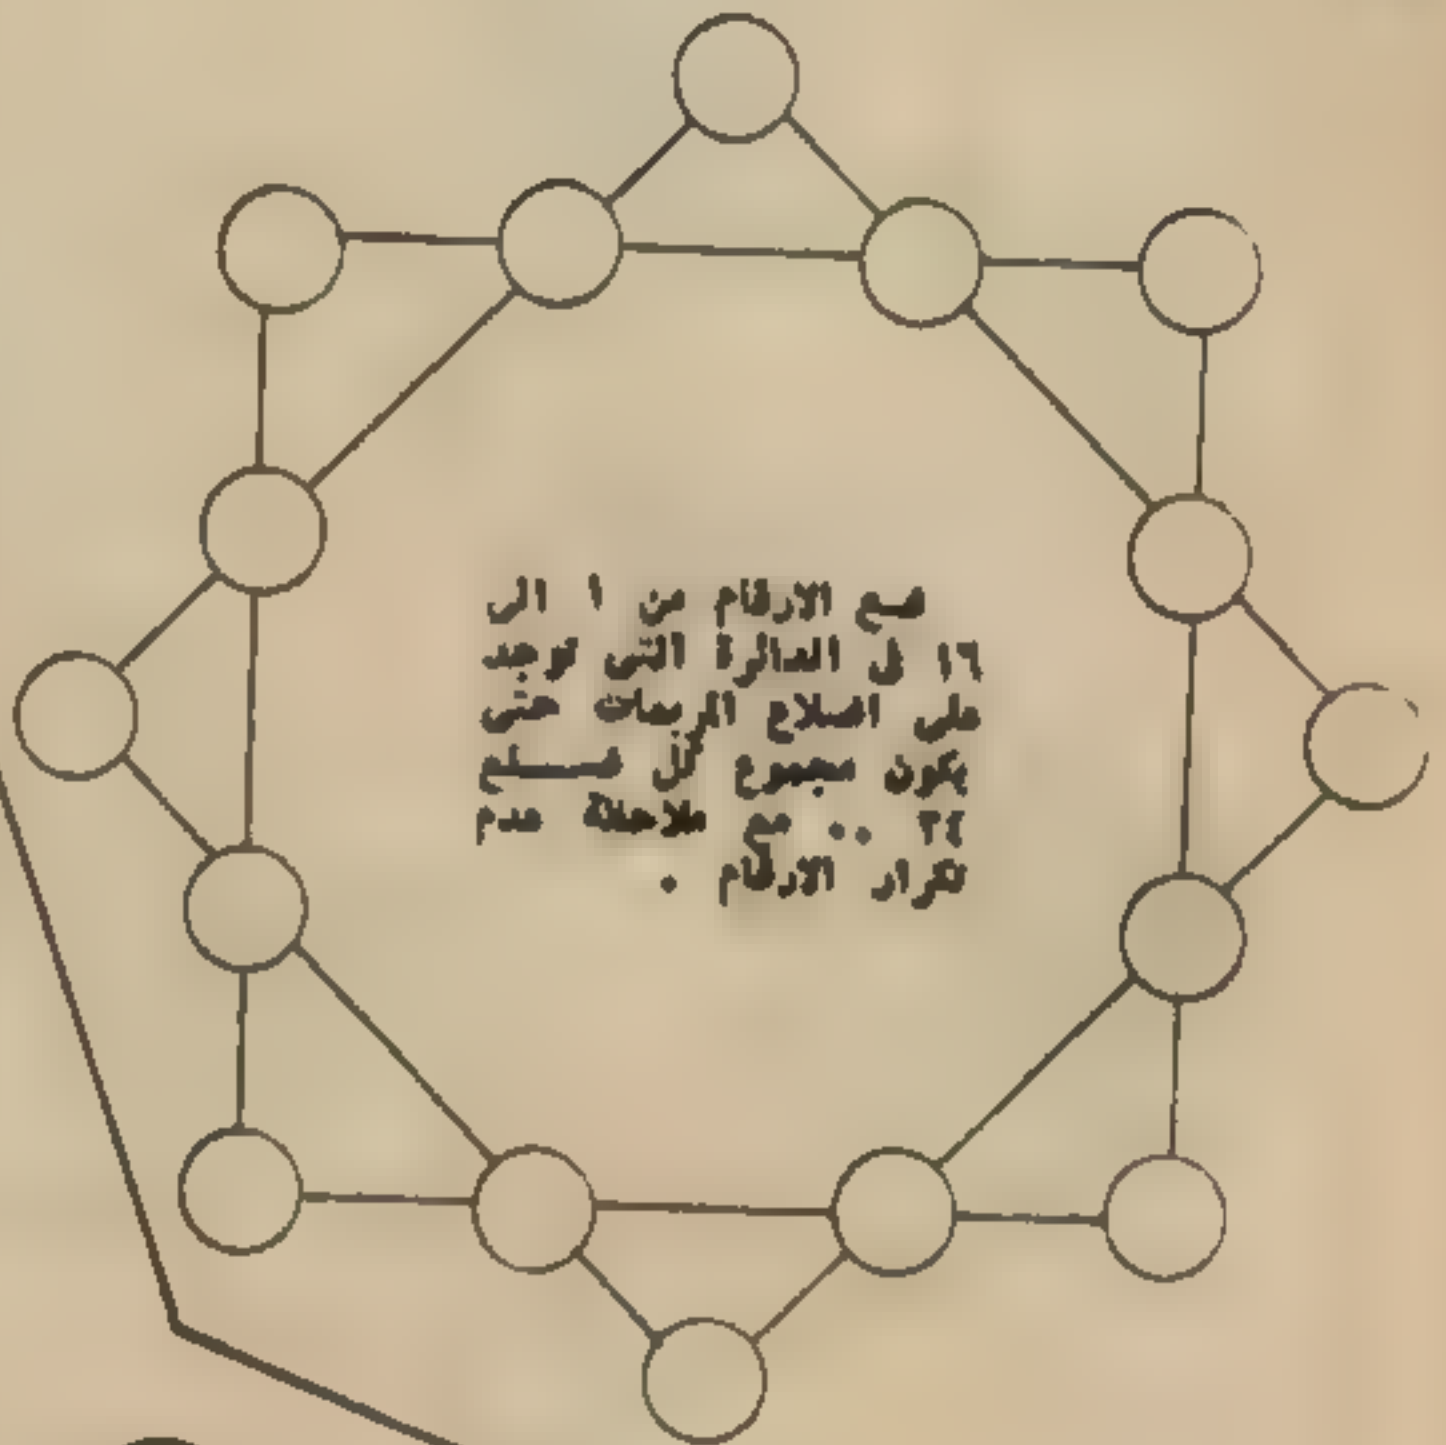 ضع الارقام من ١ الى
١٦ في الدائرة التي توجد
على اضلاع المربعات حتى
يكون مجموع كل ضلع
٣٤ .. مع ملاحظة عدم
تكرار الارقام .